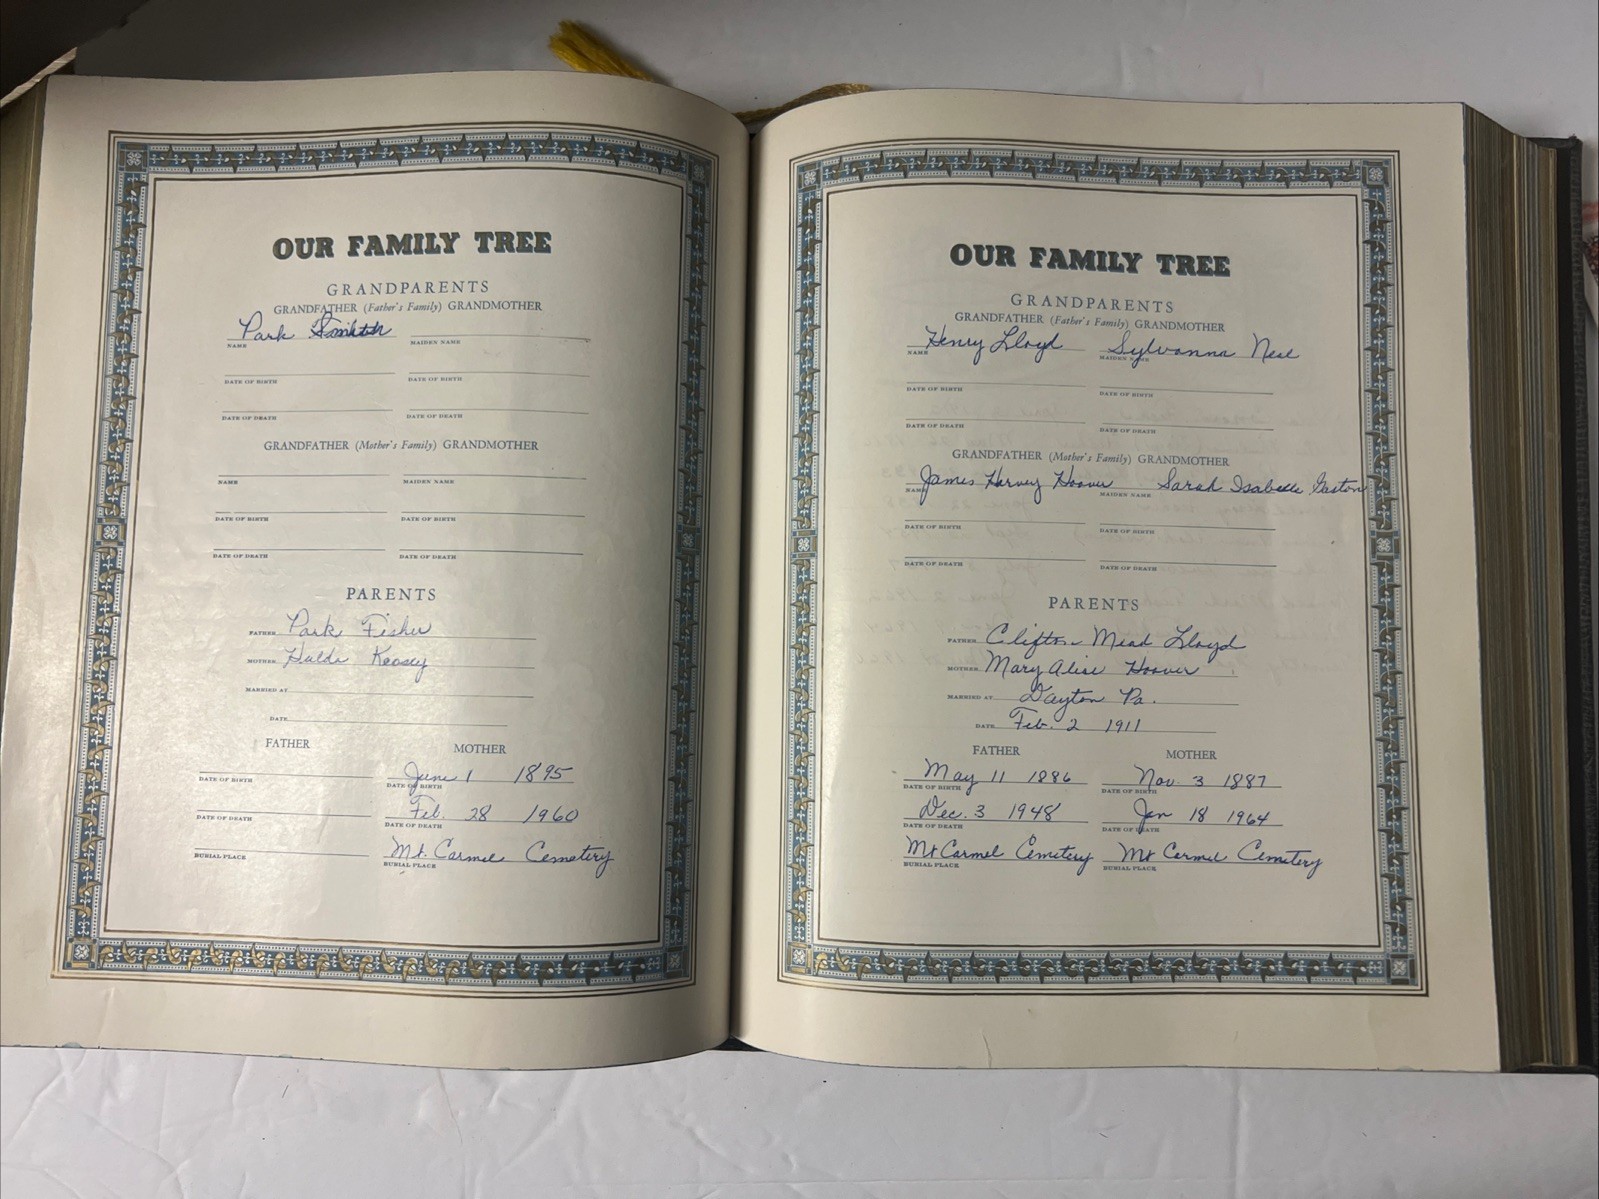 OUR FAMILY TREE
GRANDPARENTS
GRANDFATHER (Father's Family) GRANDMOTHER
Park
NAME MAIDEN NAME
DATE OF BIRTH DATE OF BIRTH
DATE OF DEATH DATE OF DEATH
GRANDFATHER (Mother's Family) GRANDMOTHER
NAME MAIDEN NAME
DATE OF BIRTH DATE OF BIRTH
DATE OF DEATH DATE OF DEATH
PARENTS
FATHER Park Fisher
MOTHER Hulda
MARRIED AT
DATE
FATHER MOTHER
June 1 1895
DATE OF BIRTH DATE OF BIRTH
Feb. 28 1960
DATE OF DEATH DATE OF DEATH
Mt. Carmel Cemetery
BURIAL PLACE BURIAL PLACE
OUR FAMILY TREE
GRANDPARENTS
GRANDFATHER (Father's Family) GRANDMOTHER
Henry Lloyd Sylvanna Neal
NAME MAIDEN NAME
DATE OF BIRTH DATE OF BIRTH
DATE OF DEATH DATE OF DEATH
GRANDFATHER (Mother's Family) GRANDMOTHER
James Harvey Hoover Sarah Isabelle Gaston
NAME MAIDEN NAME
DATE OF BIRTH DATE OF BIRTH
DATE OF DEATH DATE OF DEATH
PARENTS
FATHER Clifton Mead Lloyd
MOTHER Mary Alise Hoover
MARRIED AT Dayton Pa.
DATE Feb. 2 1911
FATHER MOTHER
May 11 1886 Nov. 3 1887
DATE OF BIRTH DATE OF BIRTH
Dec. 3 1948 Jan 18 1964
DATE OF DEATH DATE OF DEATH
Mt Carmel Cemetery Mt Carmel Cemetery
BURIAL PLACE BURIAL PLACE